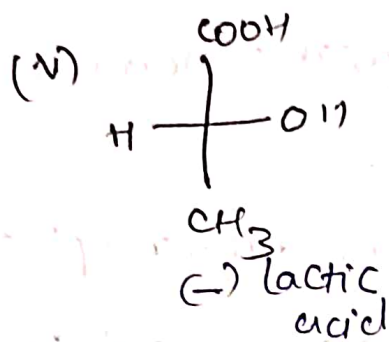 COOH
(V)
H OH
CH3
(-) lactic
acid